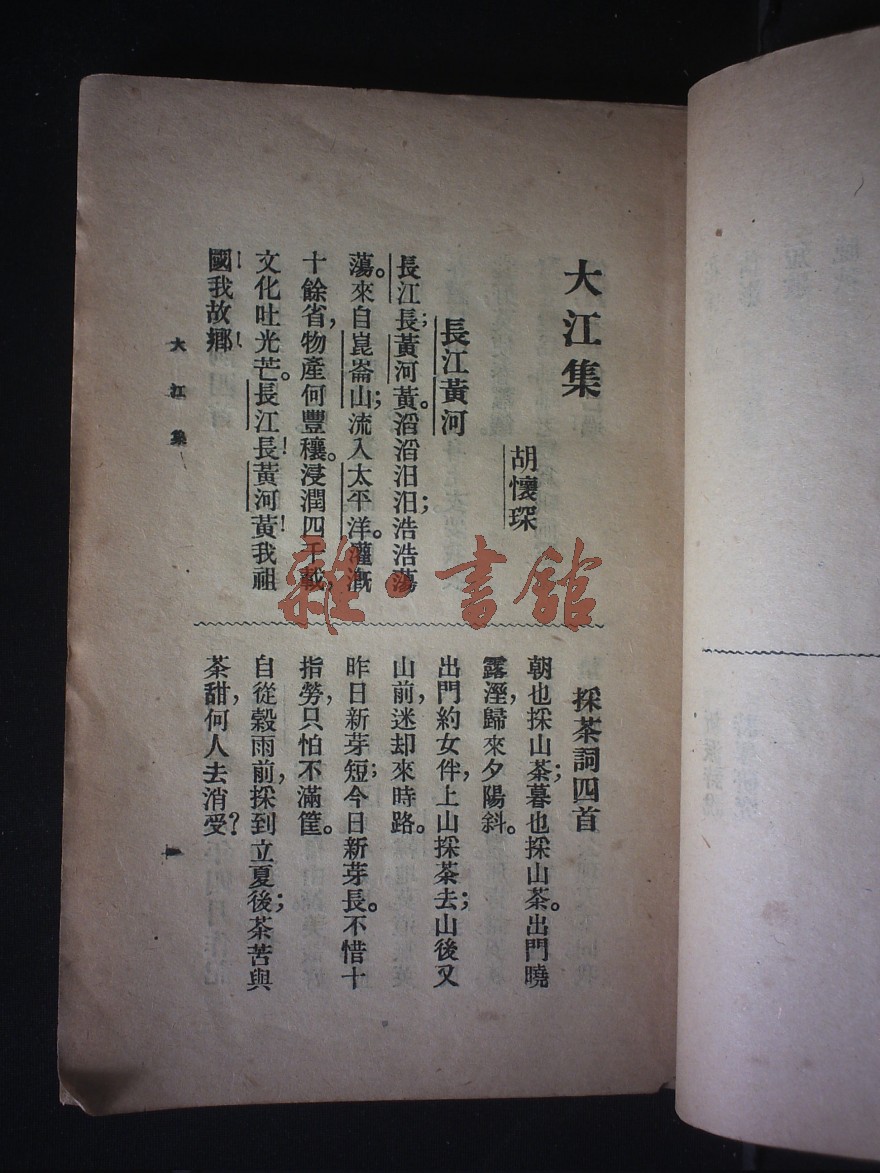 大江集
胡懷琛
長江黃河
長江長；黃河黃。滔滔汩汩；浩浩蕩
蕩。來自崑崙山；流入太平洋。灌漑
十餘省，物產何豐穰。浸潤四千載，
文化吐光芒。長江長！黃河黃！我祖
國！我故鄉！
採茶詞四首
朝也採山茶；暮也採山茶。出門曉
露溼，歸來夕陽斜。
出門約女伴，上山採茶去；山後又
山前，迷却來時路。
昨日新芽短；今日新芽長。不惜十
指勞，只怕不滿筐。
自從穀雨前，採到立夏後；茶苦與
茶甜，何人去消受？
大江集
一
雜·書館